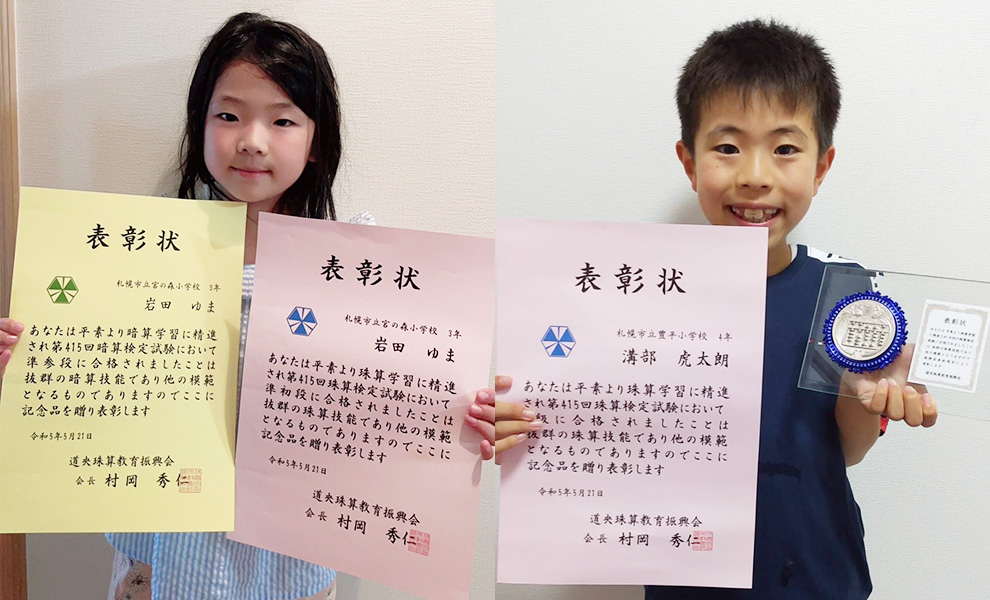 表彰状
札幌市立宮の森小学校 3年
岩田 ゆま
あなたは平素より暗算学習に精進
され第415回暗算検定試験において
準参段に合格されましたことは
抜群の暗算技能であり他の模範
となるものでありますのでここに
記念品を贈り表彰します
令和5年5月21日
道央珠算教育振興会
会長 村岡 秀仁
表彰状
札幌市立宮の森小学校 3年
岩田 ゆま
あなたは平素より珠算学習に精進
され第415回珠算検定試験において
準初段に合格されましたことは
抜群の珠算技能であり他の模範
となるものでありますのでここに
記念品を贈り表彰します
令和5年5月21日
道央珠算教育振興会
会長 村岡 秀仁
表彰状
札幌市立豊平小学校 4年
溝部 虎太朗
あなたは平素より珠算学習に精進
され第415回珠算検定試験において
段に合格されましたことは
抜群の珠算技能であり他の模範
となるものでありますのでここに
記念品を贈り表彰します
令和5年5月21日
道央珠算教育振興会
会長 村岡 秀仁
表彰状